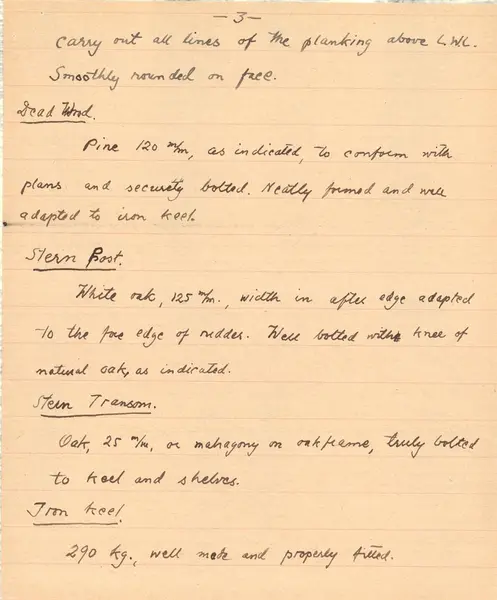 — 3 —
carry out all lines of the planking above L.W.L.
Smoothly rounded on face.
Dead Wood.
Pine 120 m/m, as indicated, to conform with
plans and securely bolted. Neatly formed and well
adapted to iron keel.
Stern Post.
White oak, 125 m/m., width in after edge adapted
to the fore edge of rudder. Well bolted with knee of
natural oak, as indicated.
Stern Transom.
Oak, 25 m/m, or mahagony on oakframe, truly bolted
to keel and shelves.
Iron keel.
290 kg., well made and properly fitted.